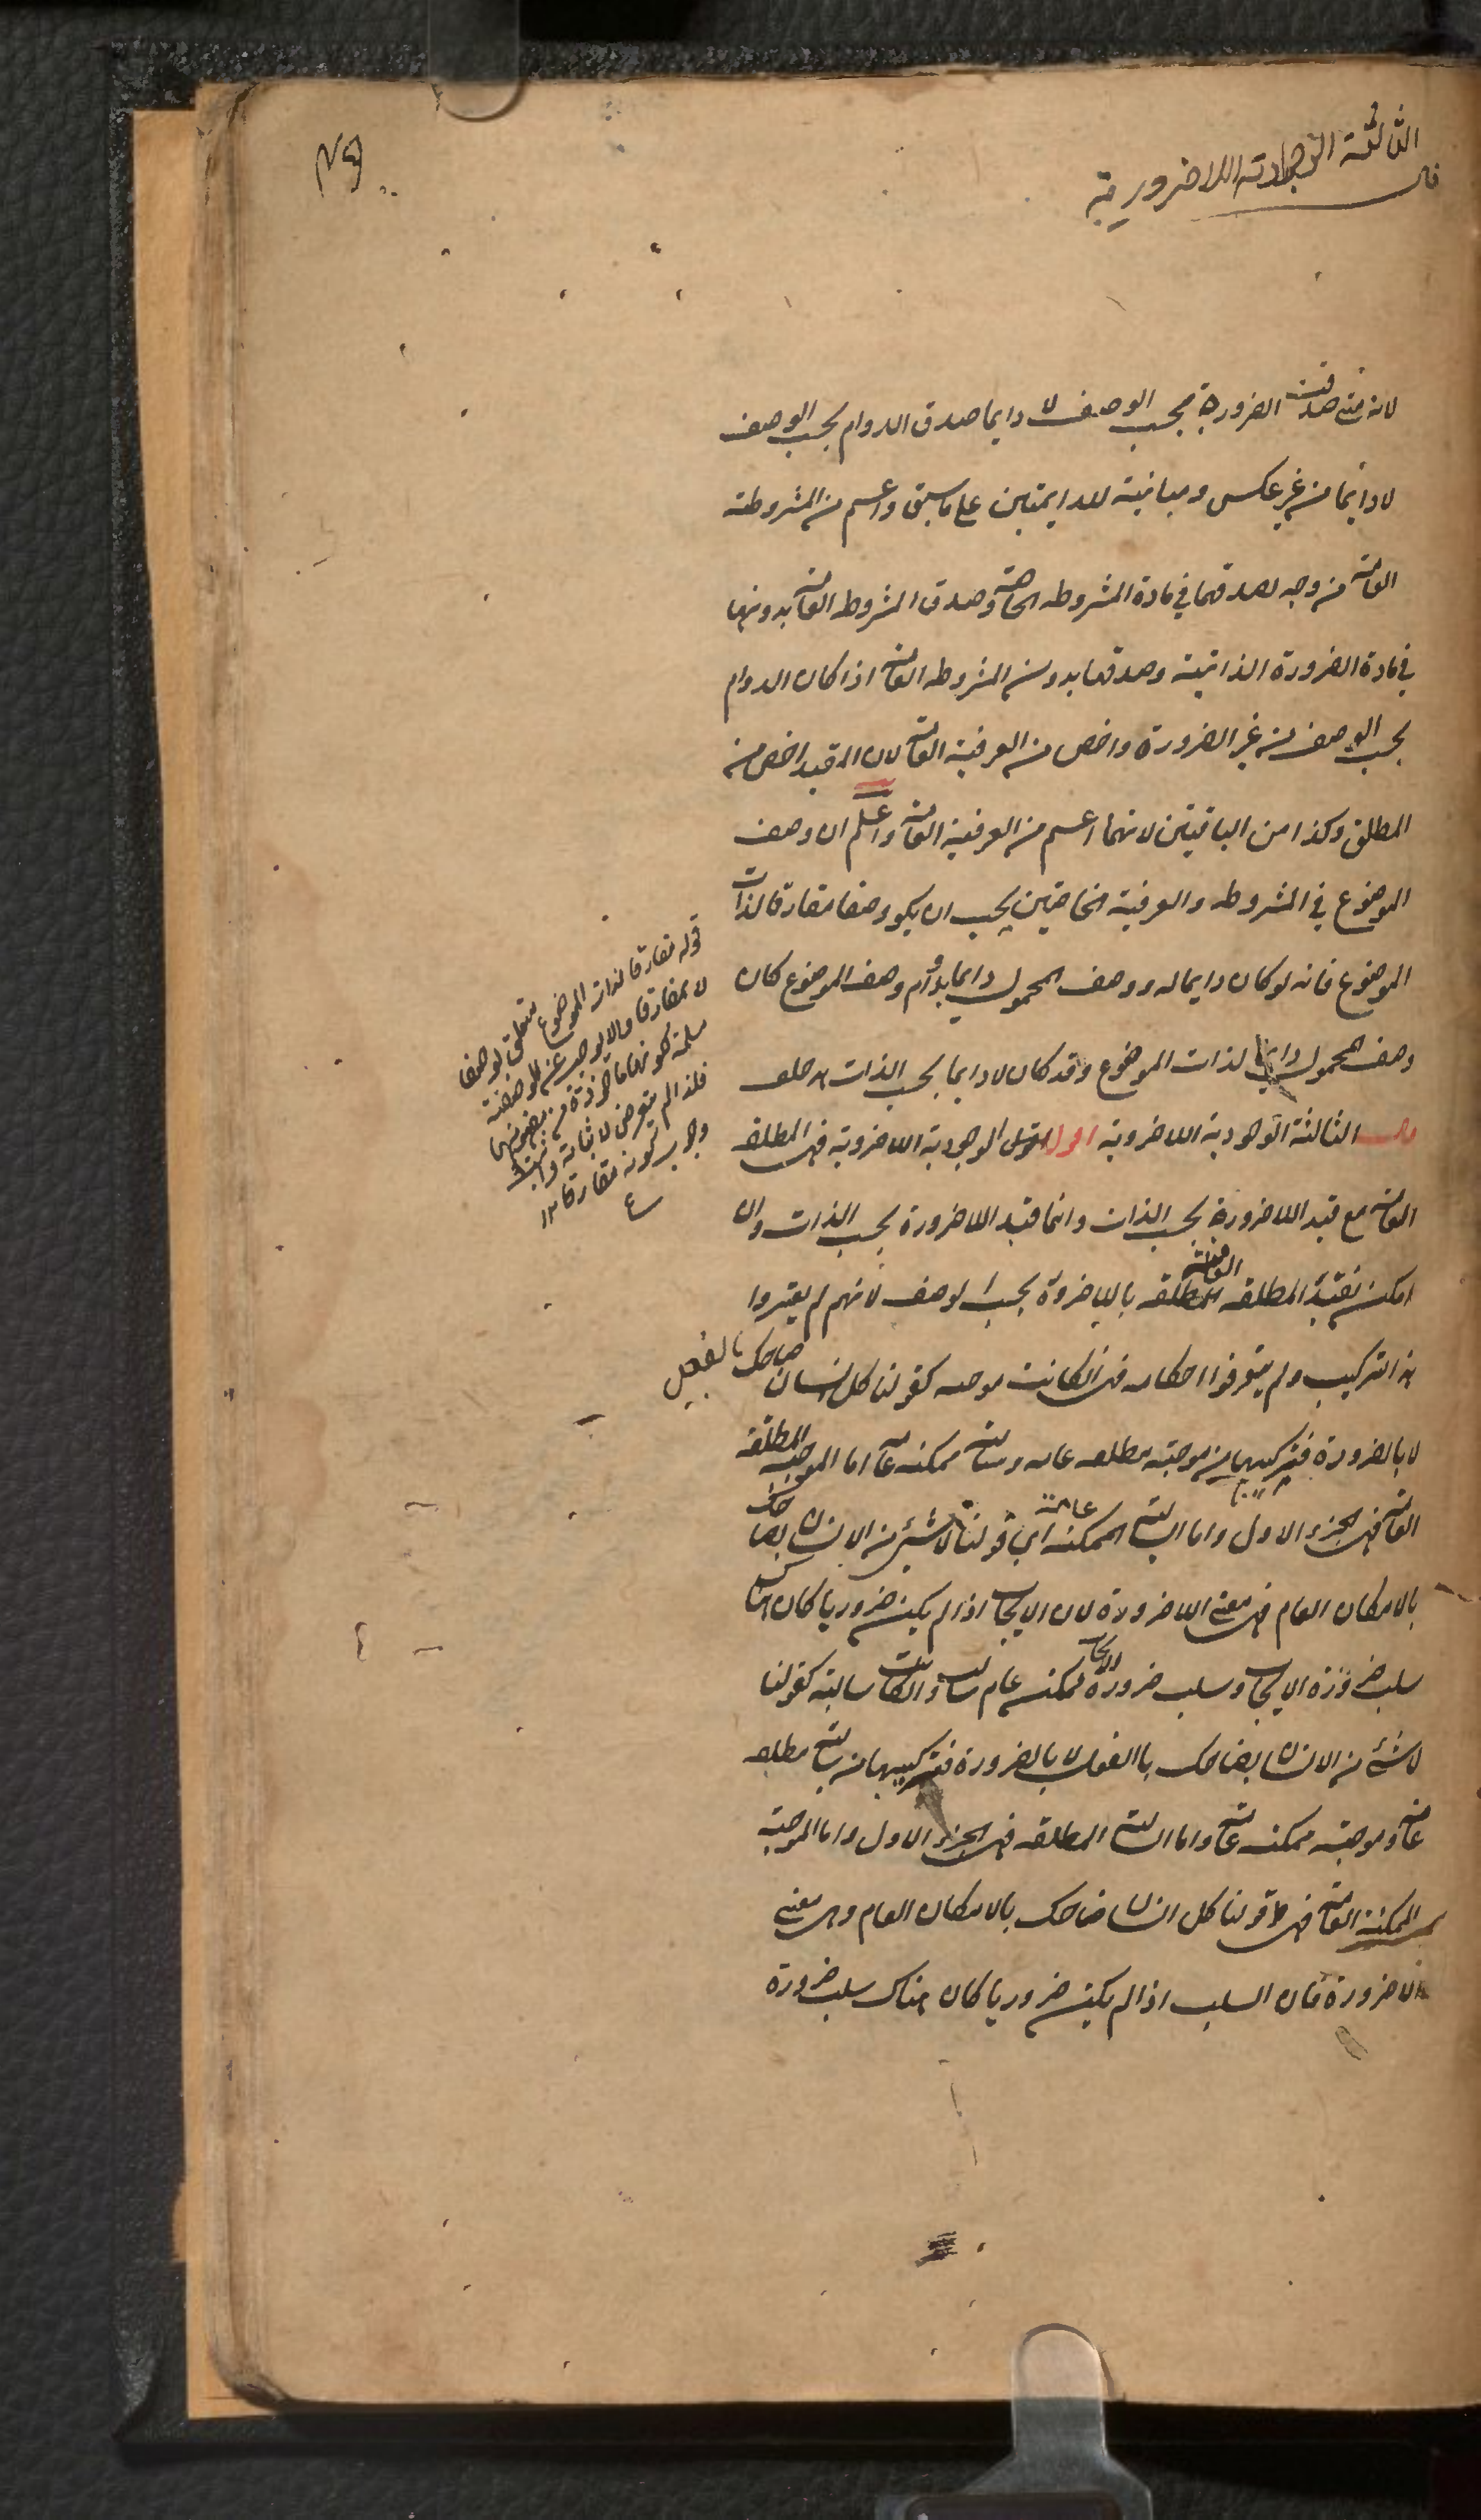 قال
الثالثة الوجودية اللاضرورية
لانه متى صدقت الضرورة بحسب الوصف لا دايما صدق الدوام بحسب الوصف
لا دايما من غير عكس ومباينة للدايمتين على ما سبق واعم من المشروطة
العامة من وجه لصدقهما في مادة المشروطه الخاصة وصدق المشروطه العامة بدونها
في مادة الضرورة الذاتية وصدقها بدون المشروطه العامة اذا كان الدوام
بحسب الوصف من غير الضرورة واخص من العرفية العامة لان المقيد اخص من
المطلق وكذا من الباقيتين لانهما اعم من العرفية العامة واعلم ان وصف
الموضوع في المشروطه والعرفية الخاصتين يجب ان يكون وصفا مفارقا لذات
الموضوع فانه لو كان دايما له ووصف المحمول دايما بدوام وصف الموضوع كان
وصف المحمول دايما لذات الموضوع وقد كان لا دايما بحسب الذات هذا خلف
قال الثالثة الوجودية اللاضرورية اقول الوجودية اللاضرورية هى المطلقة
العامة مع قيد اللاضرورة بحسب الذات وانما قيد اللاضرورة بحسب الذات وان
امكن تقييد المطلقه العامة باللاضرورة بحسب الوصف لانهم لم يعتبروا
هذا التركيب ولم يتعرفوا احكامه فهى ان كانت موجبه كقولنا كل انسان ضاحك بالفعل
لا بالضرورة فتركيبها من موجبة مطلقه عامه وسالبة ممكنه عامة اما الموجبة المطلقة
العامة فهى الجزء الاول واما السالبة الممكنه عامة اى قولنا لا شئ من الانسان بضاحك
بالامكان العام فهى معنى اللاضرورة لان الايجاب اذا لم يكن ضروريا كان هناك
سلب ضرورة الايجاب وسلب ضرورة الايجاب ممكنه عام سالب وان كانت سالبة كقولنا
لا شئ من الانسان بضاحك بالفعل لا بالضرورة فتركيبها من سالبة مطلقه
عامة وموجبة ممكنه عامة واما السالبة المطلقه فهى الجزء الاول واما الموجبة
الممكنة العامة فهى قولنا كل انسان ضاحك بالامكان العام وهى معنى
اللاضرورة فان السلب اذا لم يكن ضروريا كان هناك سلب ضرورة
قوله مفارقا لذات الموضوع متعلق بوصفا
لا بمفارقا والا لوجب عن الموضوع
فلذا لم يتعرض لاثباته
وجوب كونه مفارقا ١٢